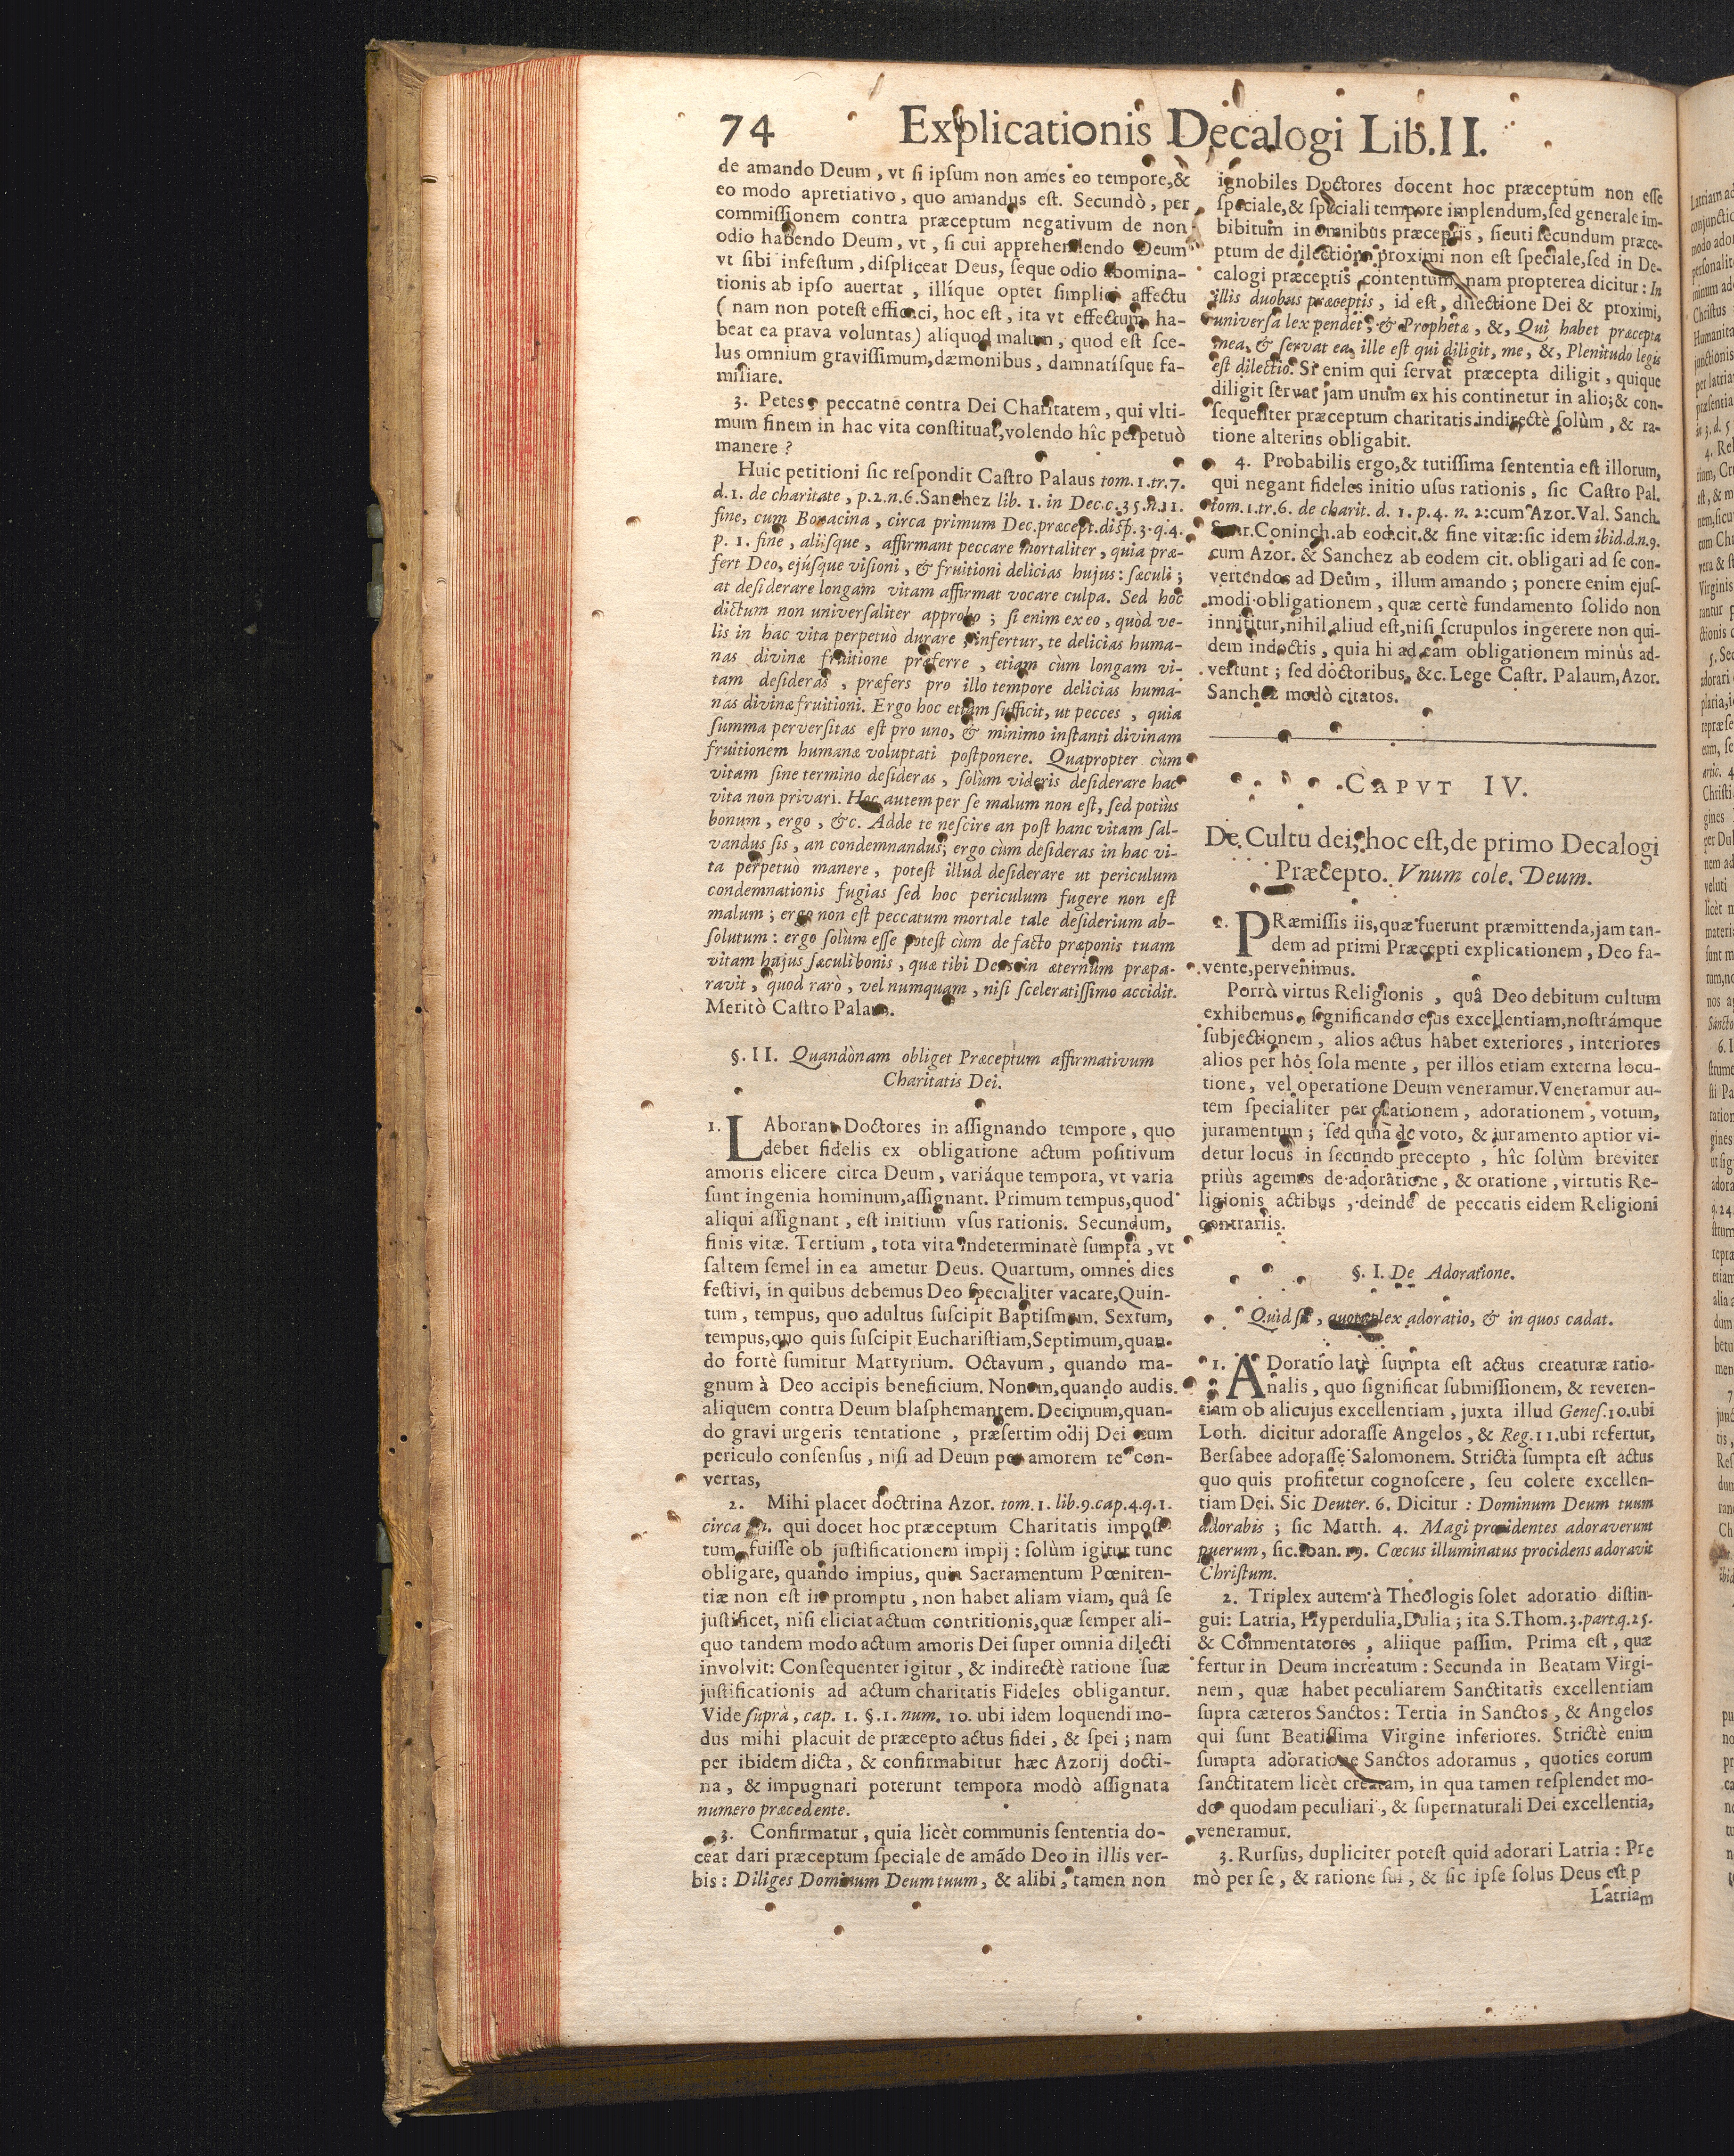 74 Explicationis Decalogi Lib.II.
de amando Deum, vt ſi ipſum non ames eo tempore, &
eo modo apretiativo, quo amandus eſt. Secundò, per
commiſſionem contra præceptum negativum de non
odio habendo Deum, vt, ſi cui apprehendendo Deum
vt ſibi infeſtum, diſpliceat Deus, ſeque odio abomina-
tionis ab ipſo auertat, illíque optet ſimplici affectu
(nam non poteſt efficaci, hoc eſt, ita vt effectum ha-
beat ea prava voluntas) aliquod malum, quod eſt ſce-
lus omnium graviſſimum, dæmonibus, damnatíſque fa-
miliare.
3. Petes, peccatne contra Dei Charitatem, qui vlti-
mum finem in hac vita conſtituat, volendo hîc perpetuò
manere?
Huic petitioni ſic reſpondit Caſtro Palaus tom.1.tr.7.
d.1. de charitate, p.2.n.6. Sanchez lib. 1. in Dec.c.35.n.11.
fine, cum Bonacina, circa primum Dec.præcept.diſp.3.q.4.
p. 1. fine, aliiſque, affirmant peccare mortaliter, quia præ-
fert Deo, ejúſque viſioni, & fruitioni delicias hujus: ſæculi;
at deſiderare longam vitam affirmat vocare culpa. Sed hoc
dictum non univerſaliter approbo; ſi enim ex eo, quòd ve-
lis in hac vita perpetuò durare, infertur, te delicias huma-
nas divinæ fruitione præferre, etiam cùm longam vi-
tam deſideras, præfers pro illo tempore delicias huma-
nas divinæ fruitioni. Ergo hoc etiam ſufficit, ut pecces, quia
ſumma perverſitas eſt pro uno, & minimo inſtanti divinam
fruitionem humanæ voluptati poſtponere. Quapropter cùm
vitam ſine termino deſideras, ſolùm videris deſiderare hac
vita non privari. Hoc autem per ſe malum non eſt, ſed potiùs
bonum, ergo, &c. Adde te neſcire an poſt hanc vitam ſal-
vandus ſis, an condemnandus; ergo cùm deſideras in hac vi-
ta perpetuò manere, poteſt illud deſiderare ut periculum
condemnationis fugias ſed hoc periculum fugere non eſt
malum; ergo non eſt peccatum mortale tale deſiderium ab-
ſolutum: ergo ſolùm eſſe poteſt cùm de facto præponis tuam
vitam hujus ſæculi bonis, quæ tibi Deus in æternum præpa-
ravit, quod rarò, vel numquam, niſi ſceleratiſſimo accidit.
Meritò Caſtro Palaus.
§. II. Quandònam obliget Præceptum affirmativum
Charitatis Dei.
1. LAborant Doctores in aſſignando tempore, quo
debet fidelis ex obligatione actum poſitivum
amoris elicere circa Deum, variáque tempora, vt varia
ſunt ingenia hominum, aſſignant. Primum tempus, quod
aliqui aſſignant, eſt initium vſus rationis. Secundum,
finis vitæ. Tertium, tota vita indeterminatè ſumpta, vt
ſaltem ſemel in ea ametur Deus. Quartum, omnes dies
feſtivi, in quibus debemus Deo ſpecialiter vacare, Quin-
tum, tempus, quo adultus ſuſcipit Baptiſmum. Sextum,
tempus, quo quis ſuſcipit Euchariſtiam, Septimum, quan-
do fortè ſumitur Martyrium. Octavum, quando ma-
gnum à Deo accipis beneficium. Nonum, quando audis.
aliquem contra Deum blaſphemantem. Decimum, quan-
do gravi urgeris tentatione, præſertim odij Dei cum
periculo conſenſus, niſi ad Deum per amorem te con-
vertas,
2. Mihi placet doctrina Azor. tom. 1. lib.9.cap.4.q.1.
circa fin. qui docet hoc præceptum Charitatis impoſi-
tum fuiſſe ob juſtificationem impij: ſolùm igitur tunc
obligare, quando impius, quia Sacramentum Pœniten-
tiæ non eſt in promptu, non habet aliam viam, quâ ſe
juſtificet, niſi eliciat actum contritionis, quæ ſemper ali-
quo tandem modo actum amoris Dei ſuper omnia dilecti
involvit: Conſequenter igitur, & indirectè ratione ſuæ
juſtificationis ad actum charitatis Fideles obligantur.
Vide ſuprà, cap. 1. §.1. num. 10. ubi idem loquendi mo-
dus mihi placuit de præcepto actus fidei, & ſpei; nam
per ibidem dicta, & confirmabitur hæc Azorij docti-
na, & impugnari poterunt tempora modò aſſignata
numero præcedente.
3. Confirmatur, quia licèt communis ſententia do-
ceat dari præceptum ſpeciale de amãdo Deo in illis ver-
bis: Diliges Dominum Deum tuum, & alibi, tamen non
ignobiles Doctores docent hoc præceptum non eſſe
ſpeciale, & ſpeciali tempore implendum, ſed generale im-
bibitum in omnibus præceptis, ſicuti ſecundum præce-
ptum de dilectione proximi non eſt ſpeciale, ſed in De-
calogi præceptis contentum, nam propterea dicitur: In
illis duobus præceptis, id eſt, dilectione Dei & proximi,
univerſa lex pendet, & Prophetæ, &, Qui habet præcepta
mea, & ſervat ea, ille eſt qui diligit, me, &, Plenitudo legis
eſt dilectio. Si enim qui ſervat præcepta diligit, quique
diligit ſervat jam unum ex his continetur in alio; & con-
ſequenter præceptum charitatis indirectè ſolùm, & ra-
tione alterius obligabit.
4. Probabilis ergo, & tutiſſima ſententia eſt illorum,
qui negant fideles initio uſus rationis, ſic Caſtro Pal.
tom.1.tr.6. de charit. d. 1. p.4. n. 2: cum Azor. Val. Sanch.
Suar. Coninch. ab eod. cit. & fine vitæ: ſic idem ibid.d.n.9.
cum Azor. & Sanchez ab eodem cit. obligari ad ſe con-
vertendos ad Deum, illum amando; ponere enim ejuſ-
modi obligationem, quæ certè fundamento ſolido non
innititur, nihil aliud eſt, niſi ſcrupulos ingerere non qui-
dem indoctis, quia hi ad eam obligationem minùs ad-
vertunt; ſed doctoribus, &c. Lege Caſtr. Palaum, Azor.
Sanchez modò citatos.
CAPVT IV.
De Cultu dei, hoc eſt, de primo Decalogi
Præcepto. Vnum cole. Deum.
1. PRæmiſſis iis, quæ fuerunt præmittenda, jam tan-
dem ad primi Præcepti explicationem, Deo fa-
vente, pervenimus.
Porrò virtus Religionis, quâ Deo debitum cultum
exhibemus, ſignificando ejus excellentiam, noſtrámque
ſubjectionem, alios actus habet exteriores, interiores
alios per hos ſola mente, per illos etiam externa locu-
tione, vel operatione Deum veneramur. Veneramur au-
tem ſpecialiter per orationem, adorationem, votum,
juramentum; ſed quia de voto, & juramento aptior vi-
detur locus in ſecundo precepto, hîc ſolùm breviter
priùs agemus de adoratione, & oratione, virtutis Re-
ligionis actibus, deinde de peccatis eidem Religioni
contrariis.
§. I. De Adoratione.
Quid ſit, quotuplex adoratio, & in quos cadat.
1. ADoratio latè ſumpta eſt actus creaturæ ratio-
nalis, quo ſignificat ſubmiſſionem, & reveren-
tiam ob alicujus excellentiam, juxta illud Geneſ.10.ubi
Loth. dicitur adoraſſe Angelos, & Reg.11.ubi refertur,
Berſabee adoraſſe Salomonem. Stricta ſumpta eſt actus
quo quis profitetur cognoſcere, ſeu colere excellen-
tiam Dei. Sic Deuter. 6. Dicitur: Dominum Deum tuum
adorabis; ſic Matth. 4. Magi procidentes adoraverunt
puerum, ſic. Ioan. 19. Cœcus illuminatus procidens adoravit
Chriſtum.
2. Triplex autem à Theologis ſolet adoratio diſtin-
gui: Latria, Hyperdulia, Dulia; ita S. Thom. 3.part.q.25.
& Commentatores, aliique paſſim. Prima eſt, quæ
fertur in Deum increatum: Secunda in Beatam Virgi-
nem, quæ habet peculiarem Sanctitatis excellentiam
ſupra cæteros Sanctos: Tertia in Sanctos, & Angelos
qui ſunt Beatiſſima Virgine inferiores. Strictè enim
ſumpta adoratione Sanctos adoramus, quoties eorum
ſanctitatem licèt creatam, in qua tamen reſplendet mo-
do quodam peculiari, & ſupernaturali Dei excellentia,
veneramur.
3. Rurſus, dupliciter poteſt quid adorari Latria: Pre
mò per ſe, & ratione ſui, & ſic ipſe ſolus Deus eſt p
Latriam